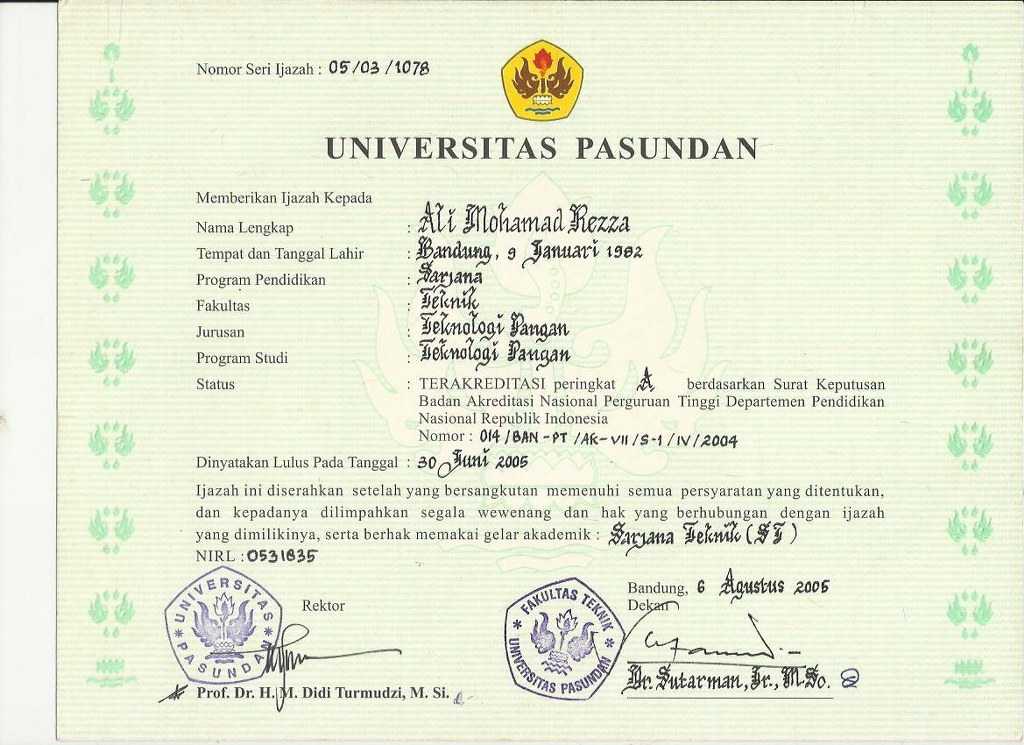 Nomor Seri Ijazah : 05/03/1078
UNIVERSITAS PASUNDAN
Memberikan Ijazah Kepada
Nama Lengkap : Ali Mohamad Rezza
Tempat dan Tanggal Lahir : Bandung, 9 Januari 1982
Program Pendidikan : Sarjana
Fakultas : Teknik
Jurusan : Teknologi Pangan
Program Studi : Teknologi Pangan
Status : TERAKREDITASI peringkat A berdasarkan Surat Keputusan
Badan Akreditasi Nasional Perguruan Tinggi Departemen Pendidikan
Nasional Republik Indonesia
Nomor : 014/BAN-PT/AK-VII/S-1/IV/2004
Dinyatakan Lulus Pada Tanggal : 30 Juni 2005
Ijazah ini diserahkan setelah yang bersangkutan memenuhi semua persyaratan yang ditentukan,
dan kepadanya dilimpahkan segala wewenang dan hak yang berhubungan dengan ijazah
yang dimilikinya, serta berhak memakai gelar akademik : Sarjana Teknik (ST)
NIRL : 0531835
Bandung, 6 Agustus 2005
Rektor
Dekan
UNIVERSITAS PASUNDAN
FAKULTAS TEKNIK
UNIVERSITAS PASUNDAN
Prof. Dr. H. M. Didi Turmudzi, M. Si.
Dr. Sutarman, Ir., M.Sc.